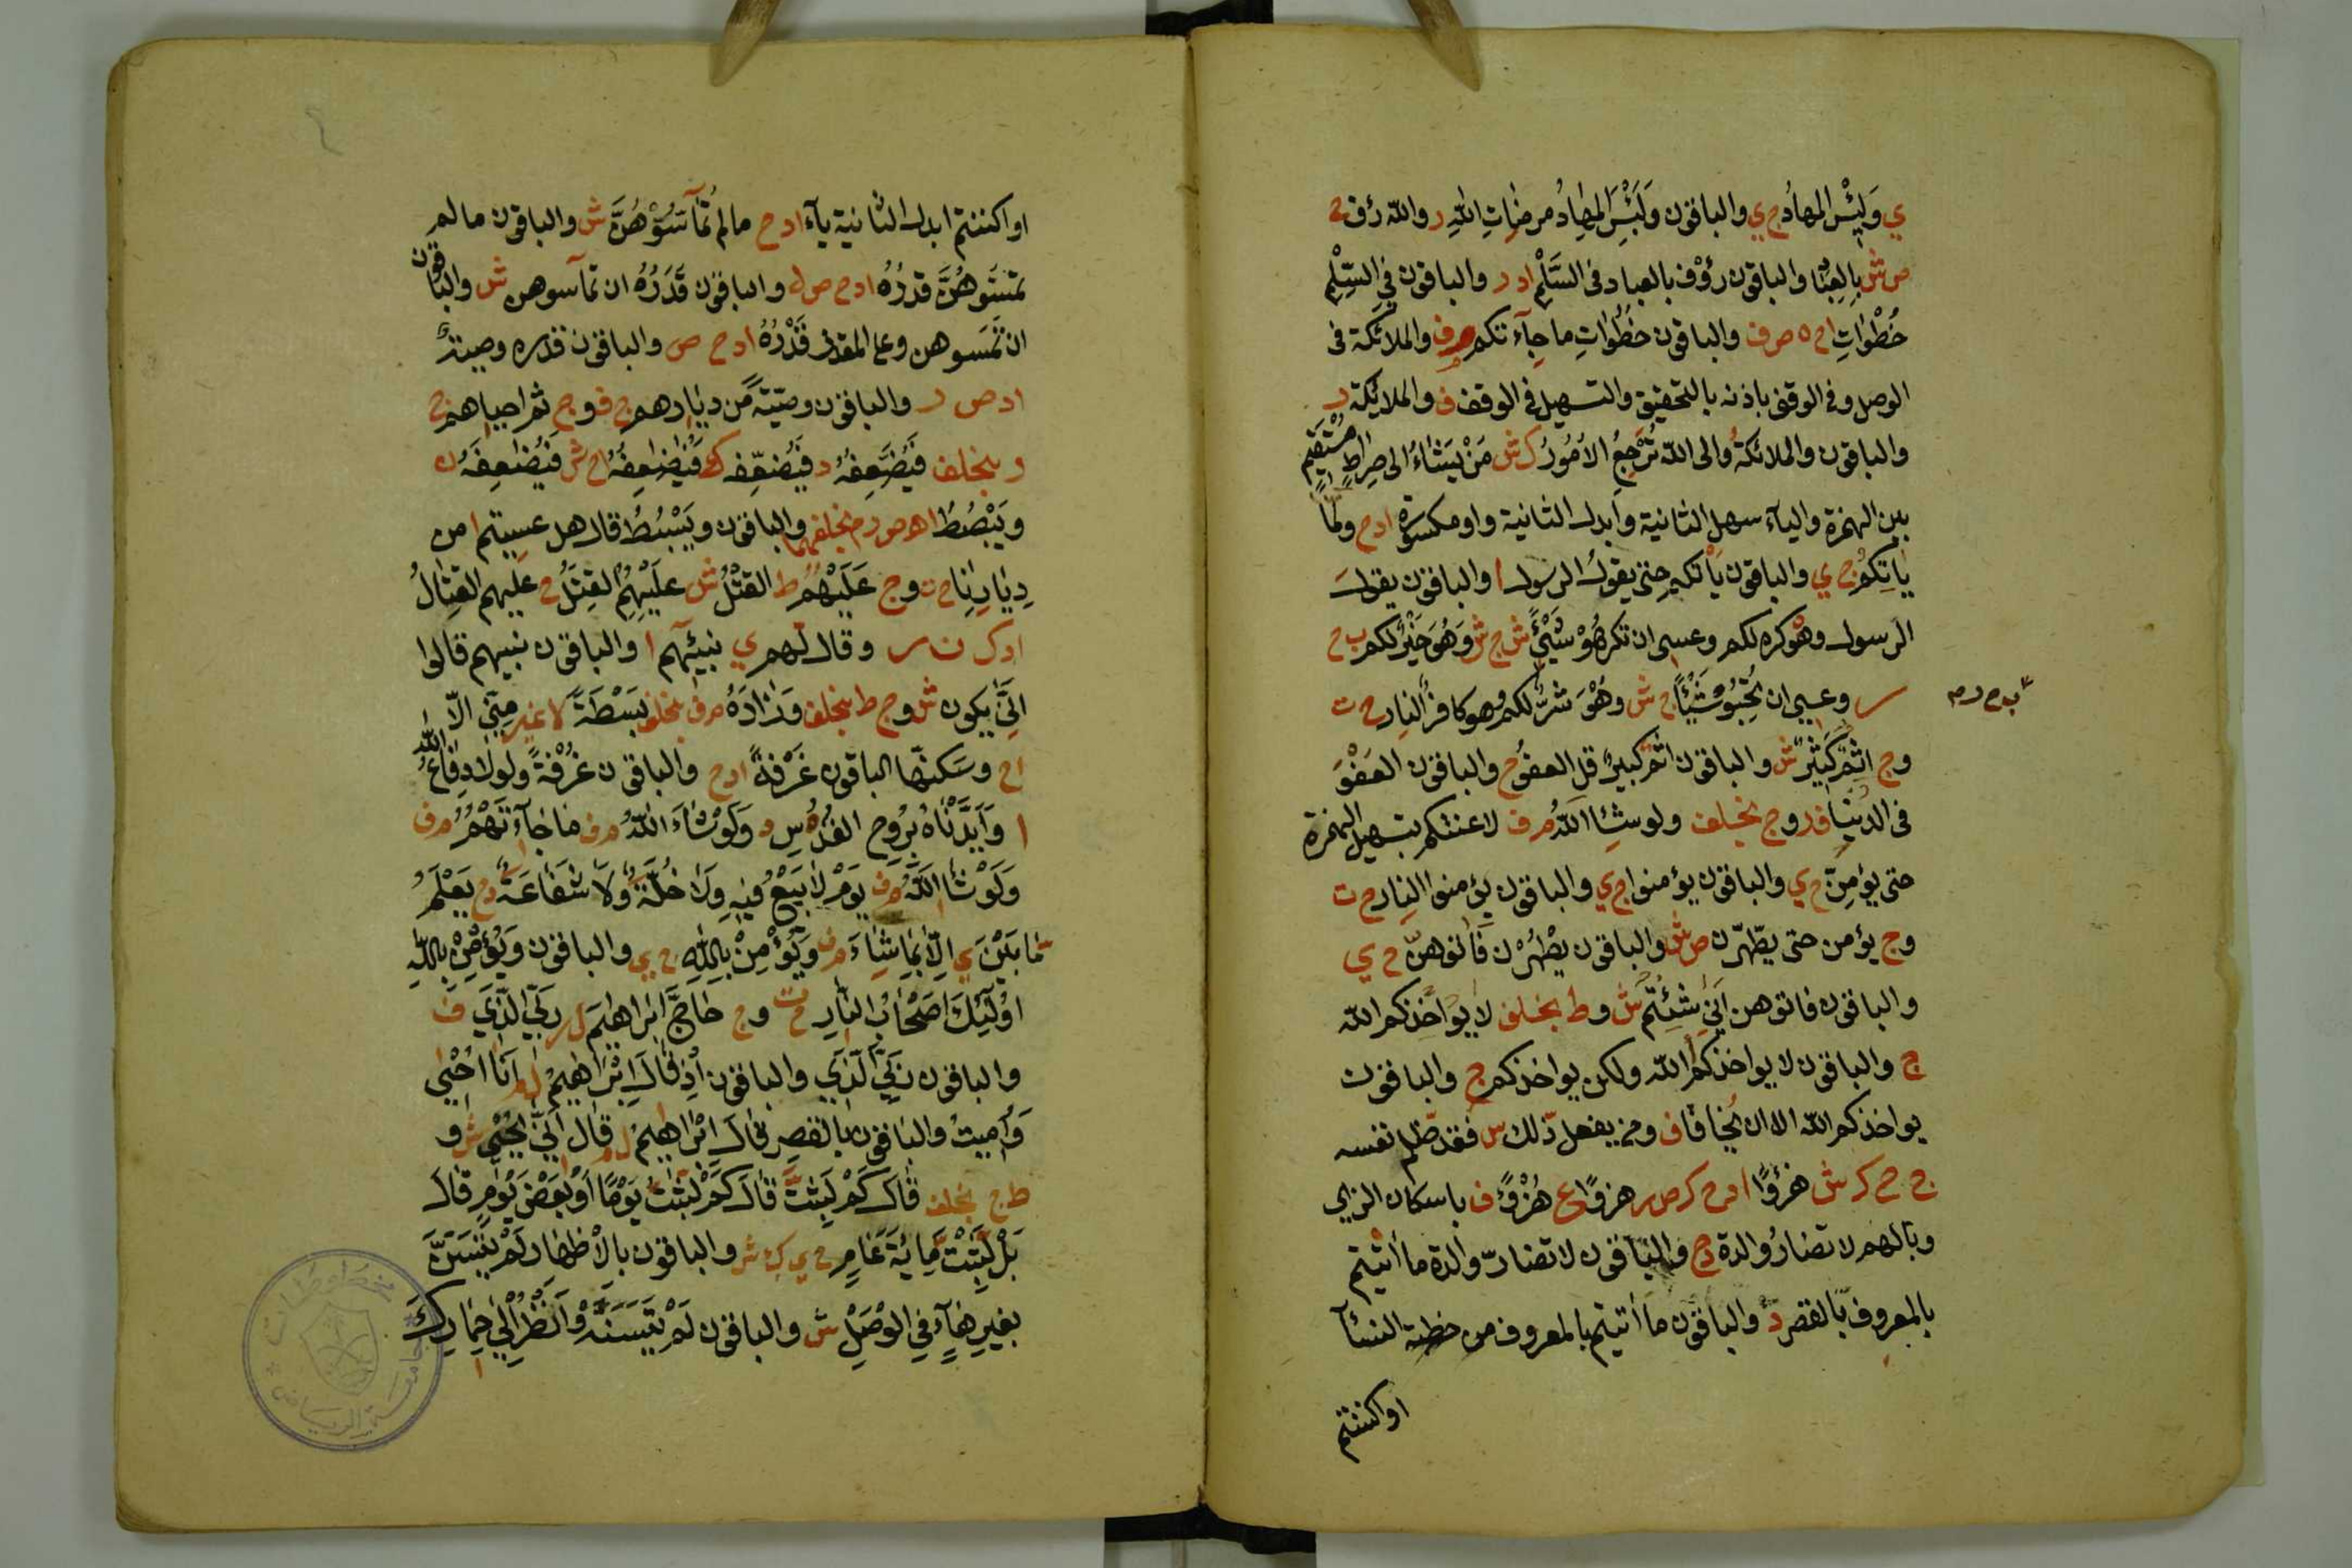 ي وَلَبِيْسَ المهادُ ج ي والباقون وَلَبِئْسَ المِهادُ مرضاتِ اللهِ ر والله رؤف ح
ص ش بِالعِبٰادِ والباقون رؤوف بالعباد فى السَّلْمِ ا د ر والباقون فى السِّلْمِ
خُطْوٰاتِ ا ح ه ص ف والباقون خُطُوٰاتِ ما جآءتكم م ف والملائكة فى
الوصل وفى الوقف باذنه بالتحقيق والتسهيل فى الوقف ف والملائكة ر
والباقون والملائكةُ والى الله تَرْجِعُ الاُمُورُ ك ش مَنْ يَشٰاءُ الى صِراطٍ مُسْتَقِيمٍ
بين الهمزة والياء سهل الثانية وابدل الثانية واو مكسورة ا د ح ولمّا
يٰاتِكُمْ ج ي والباقون يَأْتكم حتى يقولُ الرسول ا والباقون يقولَ
الرسول وهو كره لكم وعسى ان تكرهُوْ شَيْئًا ش ج ش وَهُوَ خَيْرٌ لكم ب ح
ر وعسى ان تُحِبُّوْ شَيْئًا ج ش وهُوَ شرٌّ لكم وهو كافر النار ح ت
ب ح ر م
وج اثم كَثِيْرٌ ش والباقون اثم كبير قل العفوُ ح والباقون العَفْوَ
فى الدنيا ف ر وج بخلف ولو شاء اللهُ م ف لاعنتكم بتسهيل الهمزة
حتى يؤمِنّ ح ي والباقون يؤمنوا ج ي والباقون يؤمنوا النار ح ت
وج يؤمن حتى يطّهّرن ص ش والباقون يَطْهُرْن فاتوهنّ ح ي
والباقون فاتوهن اَنّٰى شِئْتُمْ ش وط بخلف لا يُوٰاخذكم الله
ج والباقون لا يواخذكم الله ولكن يواخذكم ج والباقون
يواخذكم الله الا ان يُخافا ف ومن يفعل ذلك س فقد ظلم نفسه
ج ح ك ش هزؤًا ا د ح ك ص ر هزوًا ع هُزْؤًا ف باسكان الزاي
وبالهم لا تضارُ والدة د ح والباقون لا تضارّ والدة ما اتيتم
بالمعروف بالقصر د والباقون ما اٰتيتم بالمعروف من خطبة النسآ
او اكننتم
او اكننتم ابدل الثانية يآء ا د ح مالم تُمآسُّوْهُنَّ ش والباقون مالم
تَمَسُّوهُنَّ قدْرُهُ ا د ح ص ل والباقون قَدَرُهُ ان تمآسوهن ش والباقون
ان تَمَسوهن وعلى المقتر قَدْرُهُ ا د ح ص والباقون قدَره وصيةٌ
ا د ص ر والباقون وصيّةً مّن ديٰارهم ح ف وج ثم احياهم ح
ر بخلف فَيُضَعِّفُهُ د فيُضعِّفه ك فَيُضٰاعِفُهُ ا ح ش فَيُضٰاعِفَهُ ن
ويَبْصُطُ ا ه ص ر م بخلفهما والباقون ويَبْسُطُ قال هل عسِيتم ا من
دِيٰارِنٰا ح ت وج عَلَيْهُمُ ط القتْلُ ش عليهِمِ القِتٰلُ ح عليهم القِتٰالُ
ا د ك ن ر وقال لّهم ي نبيئُهم ا والباقون نبيهم قالوا
اَنّٰى يكون ش وج ط بخلف وَزٰادَهُ م ف بخلف بَسْطَةً لا غير مِنِّي الّا
ا ح وسكنها الباقون غَرْفَةً ا د ح والباقون غُرْفةً ولولا دِفٰاعُ اللهِ
ا وَاَيَّدْنٰاهُ بِرُوحِ القُدْسِ د وَلَوْ شٰاءَ اللهُ م ف مٰا جٰآءَتْهُمُ م ف
وَلَوْ شٰاءَ اللهُ م ف يَوْمٌ لاٰ بَيْعَ فِيْهِ وَلاٰ خُلَّةَ وَلاٰ شَفٰاعَةَ د ح يَعْلَمُ
مٰا بَيْنَ ي اِلّاٰ بِمٰا شٰاءَ م ف وَيُؤْمِنْ بِاللهِ ج ي والباقون وَيُؤْمِنْ بِاللهِ
اُولٰئِكَ اَصْحٰابُ النّٰارِ ح ت وج حٰاجَّ اِبْرٰاهٰيمَ ل ر رَبِّي الَّذي ف
والباقون رَبِّيَ الَّذِي والباقون اِذْ قٰالَ اِبْرٰاهٰيمُ ل م اَنَا اُحْيِي
وَاُمِيتُ والباقون بالقصر قٰالَ اِبْرٰاهٰيمُ ل م قٰالَ اَنّٰى يُحْيِي ش و
ط ج بخلف قٰالَ كَمْ لَبِثْتَّ قٰالَ كَمْ لَبِثْتُ يَوْمًا اَوْ بَعْضَ يَوْمٍ قٰالَ
بَلْ لَبِثْتَّ مِايَةَ عٰامٍ ح ي ك ش والباقون بالْاظهار لَمْ يَتَسَنَّ
بغيرِ هٰآءٍ فِي الوَصْلِ ش والباقون لَمْ يَتَسَنَّهْ وَانْظُرْ اِلٰى حِمٰارِكَ
مخطوطات
جامعة الرياض